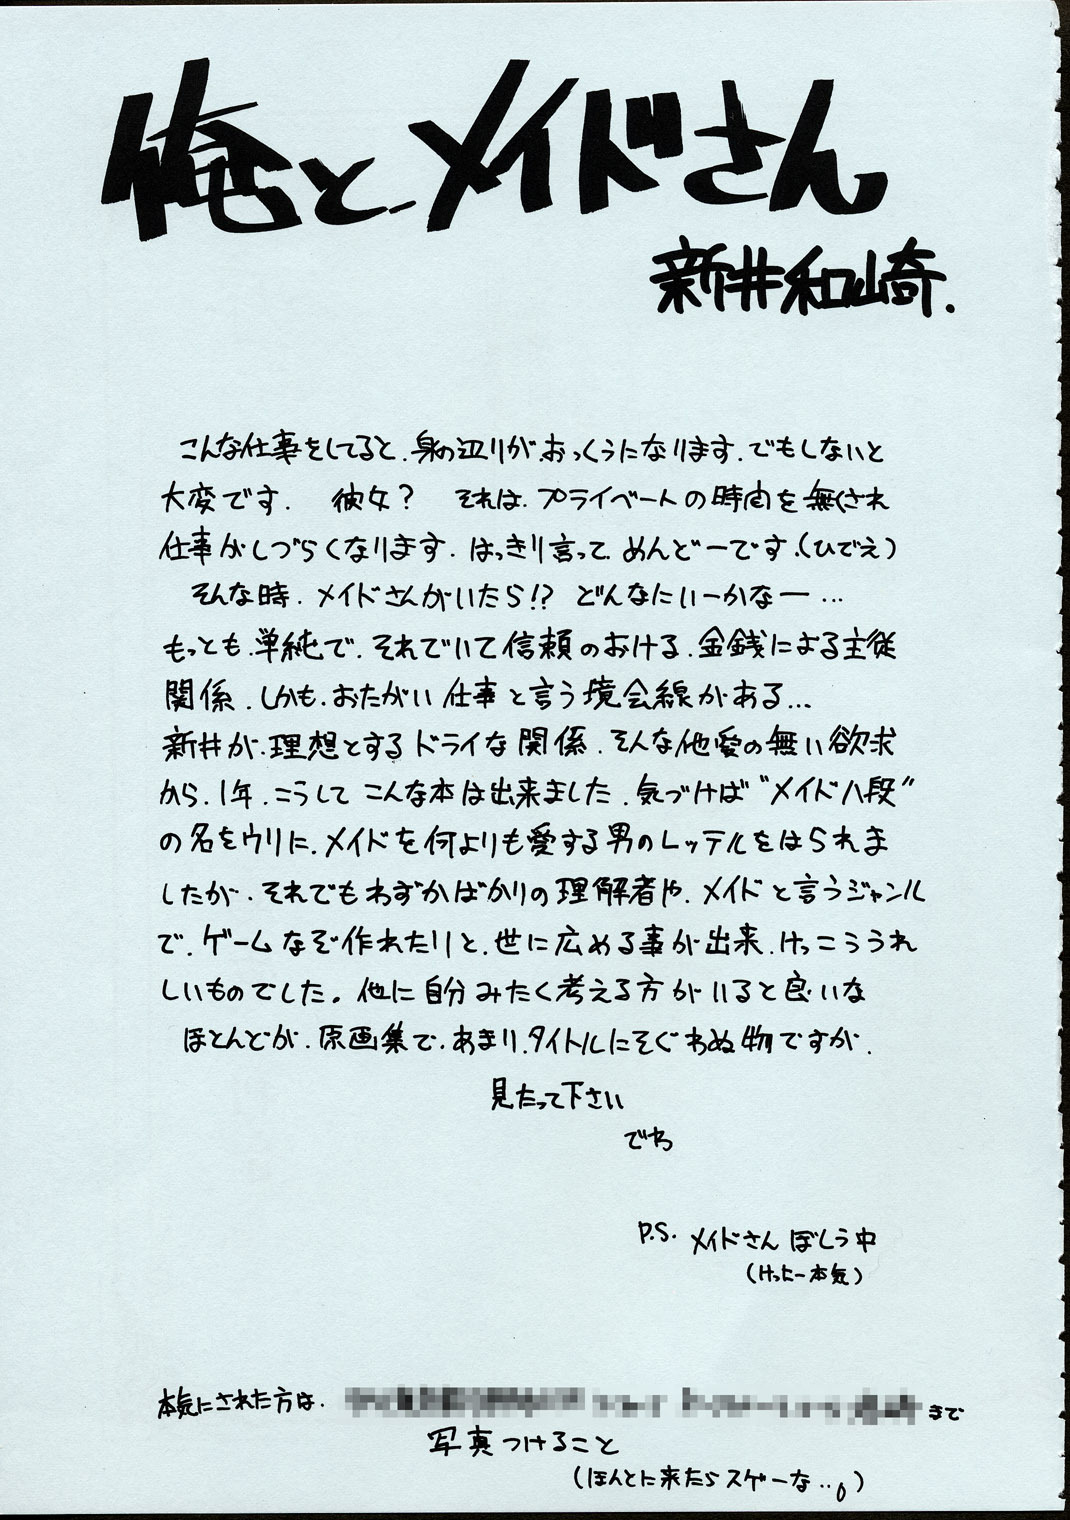 俺とメイドさん
新井和崎.
こんな仕事をしてると、身の辺りが、おっくうになります、でもしないと
大変です。 彼女？ それは、プライベートの時間を無くされ
仕事がしづらくなります、はっきり言って、めんどーです、(ひでえ)
そんな時、メイドさんがいたら!? どんなにいーかなー…
もっとも、単純で、それでいて信頼のおける、金銭による主従
関係、しかも、おたがい仕事と言う境会線がある…
新井が、理想とするドライな関係、そんな他愛の無い欲求
から、1年、こうしてこんな本は出来ました、気づけば“メイド八段”
の名をウリに、メイドを何よりも愛する男のレッテルをはられま
したが、それでもわずかばかりの理解者や、メイドと言うジャンル
で、ゲームなぞ作れたりと、世に広める事が出来、けっこううれ
しいものでした。他に自分みたく考える方がいると良いな
ほとんどが、原画集で、あまり、タイトルにそぐわぬ物ですが、
見たって下さい
でわ
P.S. メイドさんぼしう中
(けっこー本気)
本気にされた方は、
まで
写真つけること
(ほんとに来たらスゲーな…)